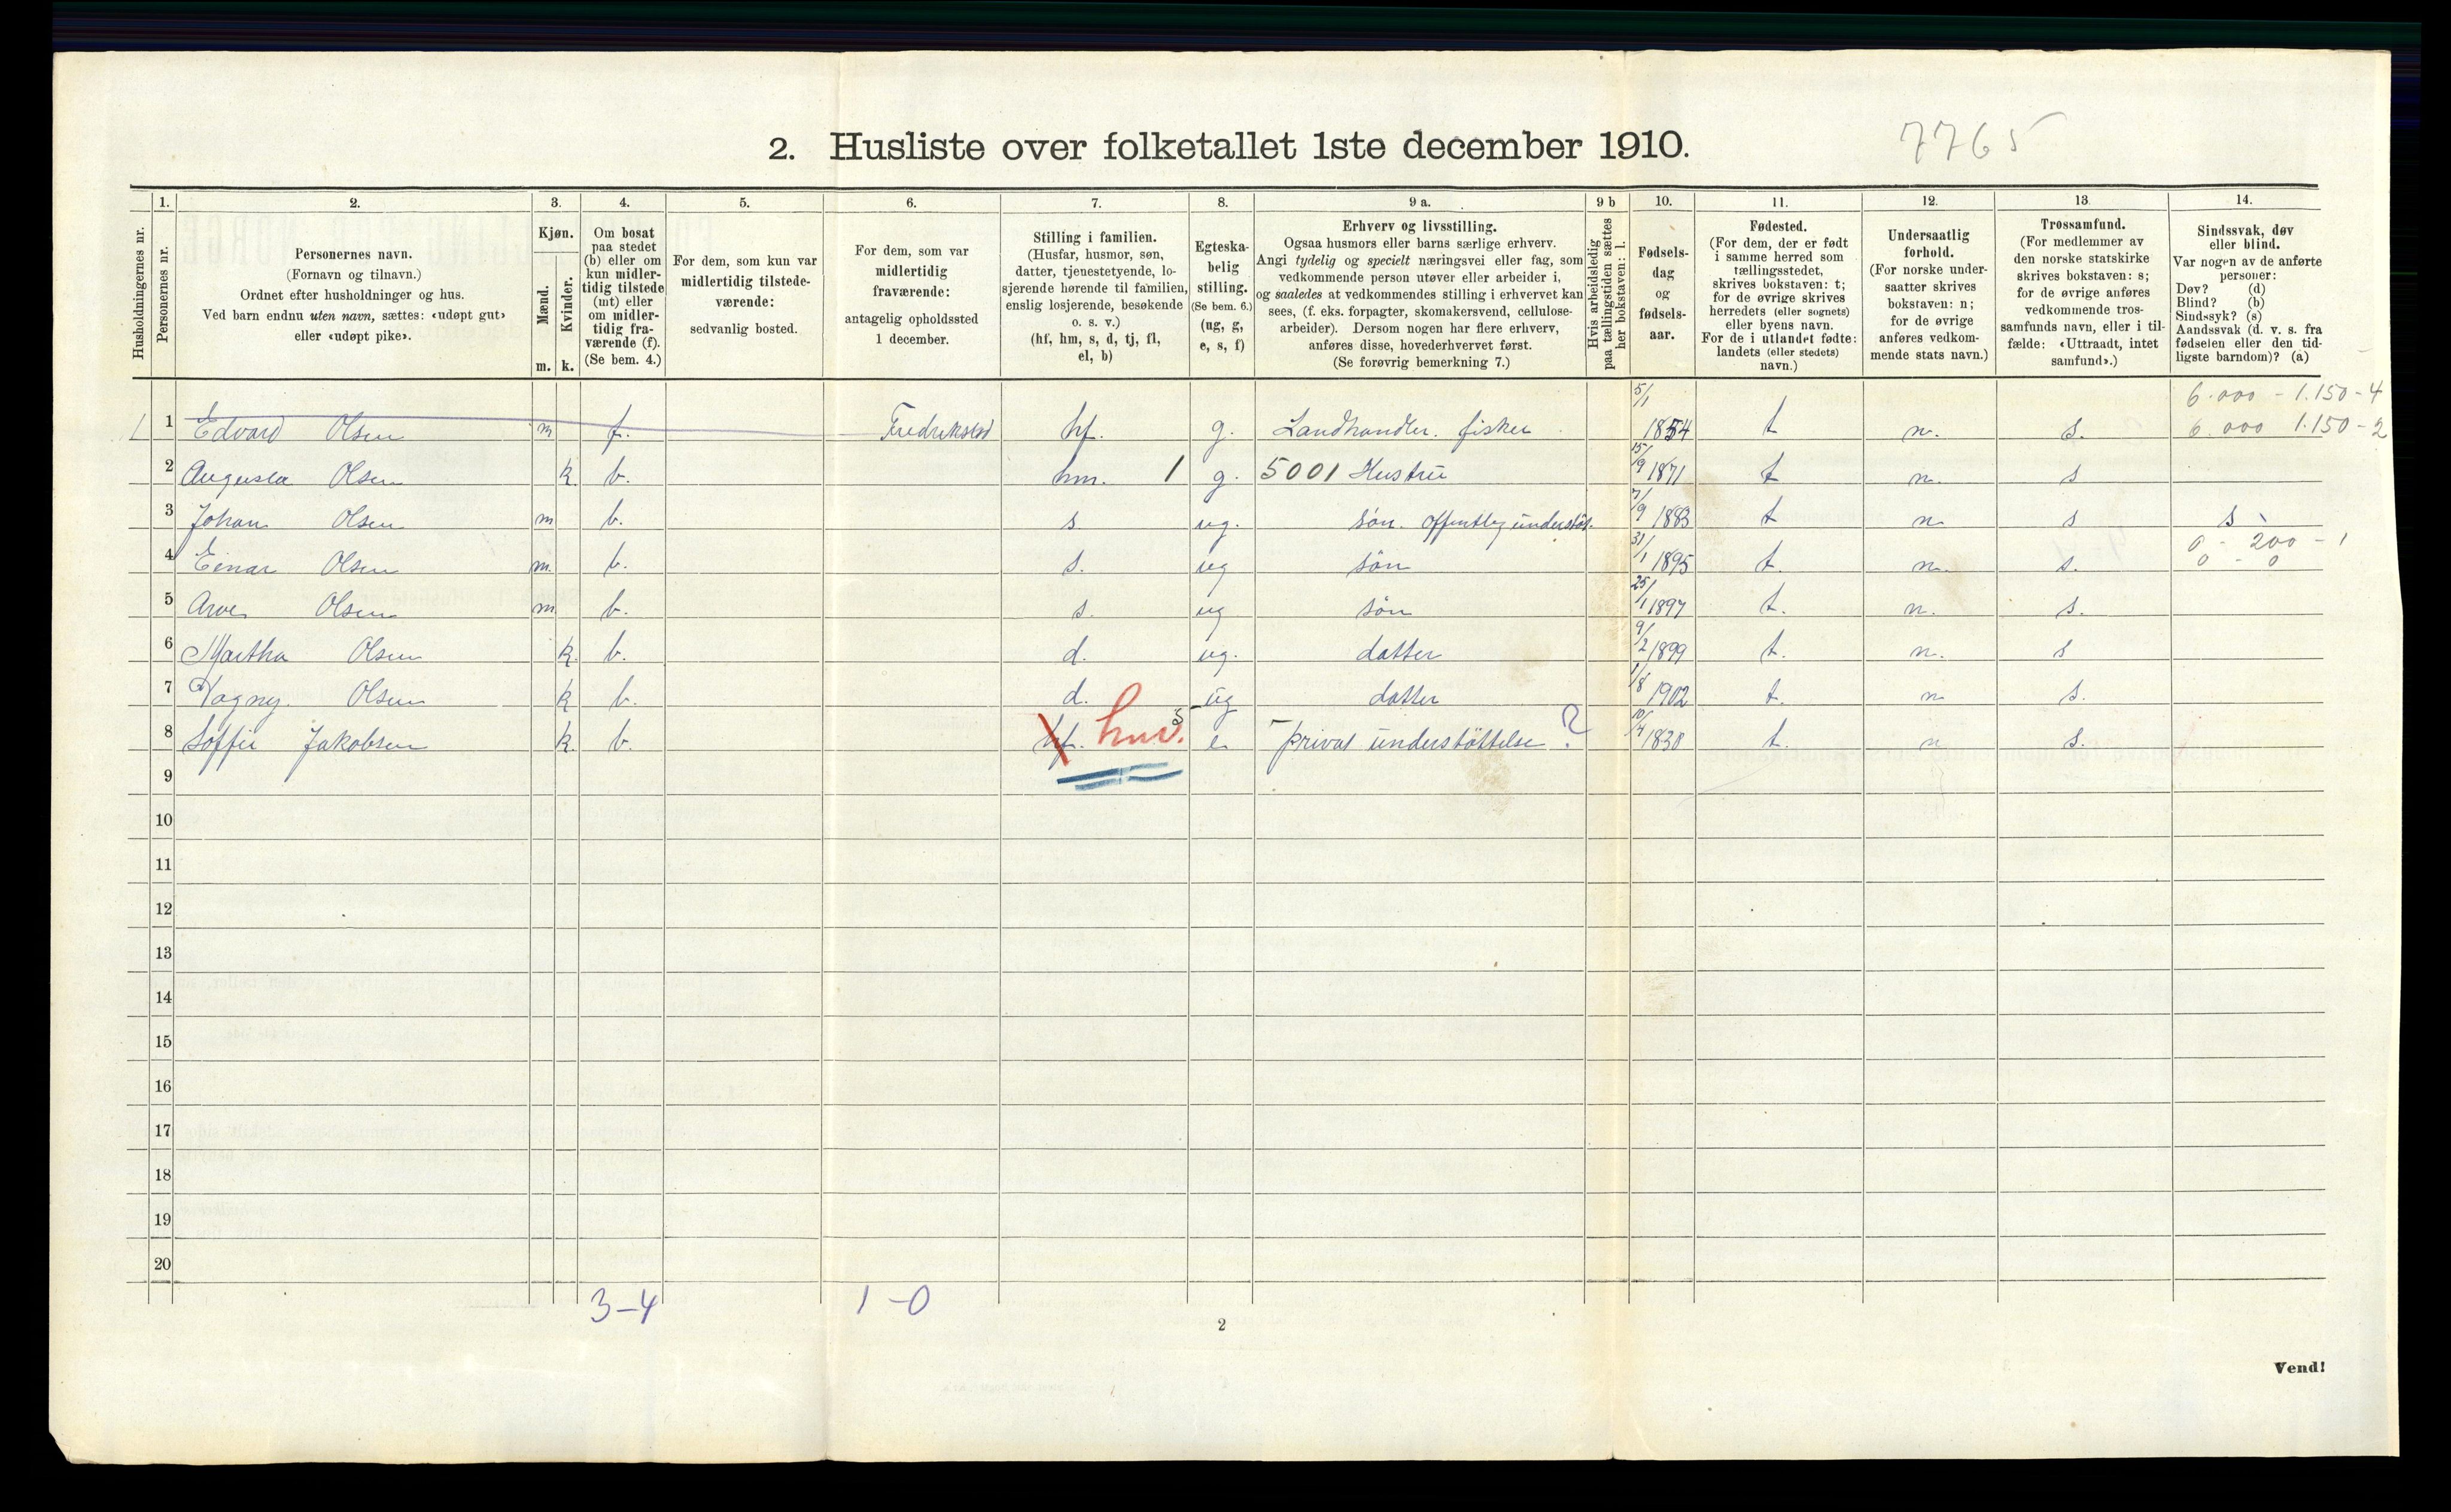 2. Husliste over folketallet 1ste december 1910.
7765
Husholdningernes nr.
1.
Personernes nr.
2.
Personernes navn.
(Fornavn og tilnavn.)
Ordnet efter husholdninger og hus.
Ved barn endnu uten navn, sættes: «udøpt gut»
eller «udøpt pike».
3.
Kjøn.
Mænd.
Kvinder.
m. k.
4.
Om bosat
paa stedet
(b) eller om
kun midler-
tidig tilstede
(mt) eller
om midler-
tidig fra-
værende (f).
(Se bem. 4.)
5.
For dem, som kun var
midlertidig tilstede-
værende:
sedvanlig bosted.
6.
For dem, som var
midlertidig
fraværende:
antagelig opholdssted
1 december.
7.
Stilling i familien.
(Husfar, husmor, søn,
datter, tjenestetyende, lo-
sjerende hørende til familien,
enslig losjerende, besøkende
o. s. v.)
(hf, hm, s, d, tj, fl,
el, b)
8.
Egteska-
belig
stilling.
(Se bem. 6.)
(ug, g,
e, s, f)
9 a.
Erhverv og livsstilling.
Ogsaa husmors eller barns særlige erhverv.
Angi tydelig og specielt næringsvei eller fag, som
vedkommende person utøver eller arbeider i,
og saaledes at vedkommendes stilling i erhvervet kan
sees, (f. eks. forpagter, skomakersvend, cellulose-
arbeider). Dersom nogen har flere erhverv,
anføres disse, hovederhvervet først.
(Se forøvrig bemerkning 7.)
9 b
Hvis arbeidsledig
paa tællingstiden sættes
her bokstaven: l.
10.
Fødsels-
dag
og
fødsels-
aar.
11.
Fødested.
(For dem, der er født
i samme herred som
tællingsstedet,
skrives bokstaven: t;
for de øvrige skrives
herredets (eller sognets)
eller byens navn.
For de i utlandet fødte:
landets (eller stedets)
navn.)
12.
Undersaatlig
forhold.
(For norske under-
saatter skrives
bokstaven: n;
for de øvrige
anføres vedkom-
mende stats navn.)
13.
Trossamfund.
(For medlemmer av
den norske statskirke
skrives bokstaven: s;
for de øvrige anføres
vedkommende tros-
samfunds navn, eller i til-
fælde: «Uttraadt, intet
samfund».)
14.
Sindssvak, døv
eller blind.
Var nogen av de anførte
personer:
Døv? (d)
Blind? (b)
Sindssyk? (s)
Aandssvak (d. v. s. fra
fødselen eller den tid-
ligste barndom)? (a)
6.000 - 1.150 - 4
1 1 Edvard Olsen m f. Fredrikstad hf. g. Landhandler. fisker 5/1 1854 t n. s. 6.000 1.150 - 2
2 Augusta Olsen k. b. hm. 1 g. 5001 Hustru 15/9 1871 t n. s
3 Johan Olsen m b. s. ug. søn. offentlig understøt. 7/9 1883 t n s s
0 - 200 - 1
4 Einar Olsen m. b. s. ug søn 31/1 1895 t. n. s. 0 - 0
5 Arve Olsen m b. s. ug søn 25/1 1897 t. n. s.
6 Martha Olsen k. b. d. ug. datter 9/2 1899 t. n. s
7 Dagny. Olsen k b. d. ug datter 1/8 1902 t. n s.
8 Soffie Jakobsen k. b. hf. hm. e. privat understøttelse ? 10/4 1830 t. n s.
9
10
11
12
13
14
15
16
17
18
19
20
3-4 1-0
2
Vend!